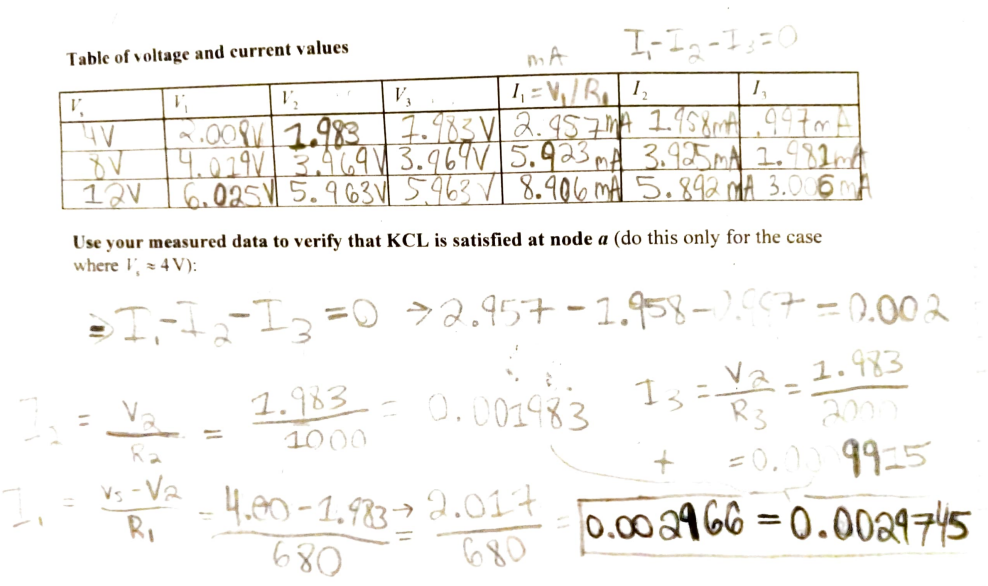 I₁-I₂-I₃=0
Table of voltage and current values
mA
Vₛ V₁ V₂ V₃ I₁ = V₁/R₁ I₂ I₃
4V 2.008V 1.983 1.983V 2.957mA 1.958mA .997mA
8V 4.019V 3.969V 3.969V 5.923mA 3.925mA 1.981mA
12V 6.025V 5.963V 5.963V 8.906mA 5.892mA 3.006mA
Use your measured data to verify that KCL is satisfied at node a (do this only for the case
where Vₛ ≈ 4 V):
⇒ I₁-I₂-I₃=0 → 2.957 - 1.958 - 0.997 = 0.002
I₂ = V₂/R₂ = 1.983/1000 = 0.001983 I₃ = V₂/R₃ = 1.983/2000
+ = 0.009915
I₁ = Vs-V₂/R₁ = 4.00-1.983/680 → = 2.017/680 = 0.002966 = 0.0029745